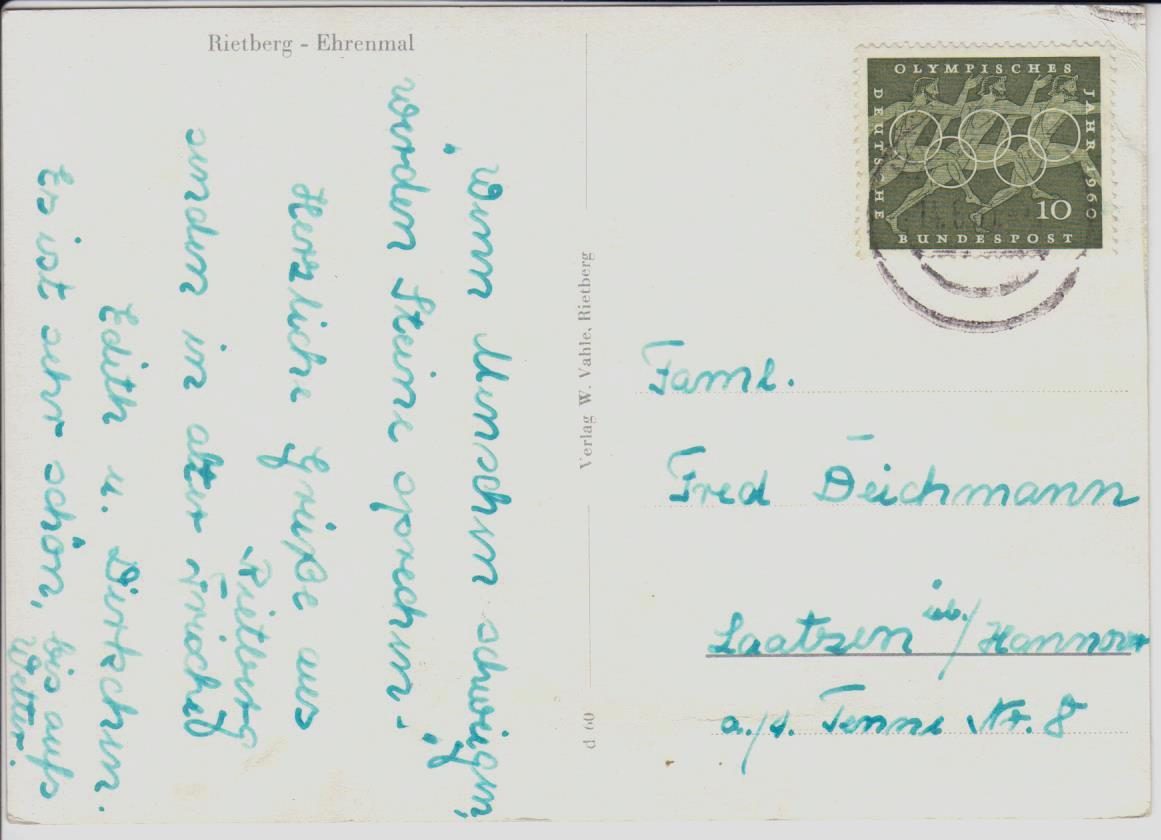 Rietberg - Ehrenmal
„Wenn Menschen schweigen,
werden Steine sprechen.“
Herzliche Grüße aus
Rietberg
senden in alter Frische
Edith u. Dirkchen.
Es ist sehr schön, bis aufs
Wetter.
Verlag W. Vahle, Rietberg
d 60
OLYMPISCHES
JAHR 1960
DEUTSCHE
BUNDESPOST
10
Faml.
Fred Deichmann
Laatzen üb./Hannover
a./d. Tenne Nr. 8